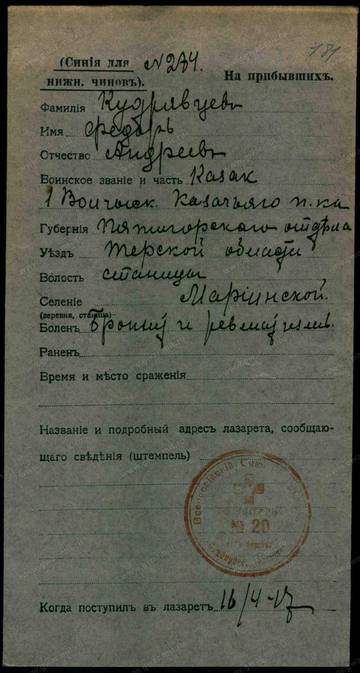 (Синія для
нижн. чиновъ).
№ 284.
181
На прибывшихъ.
Фамилія Кудрявцевъ
Имя Федоръ
Отчество Андреевъ
Воинское званіе и часть Казак
1 Волгск. Казачьяго п.ка
Губернія Пятигорскаго отдѣла
Уѣздъ Терской области
Волость станицы
Селеніе Маріинской.
(деревня, станица)
Боленъ Бронхит и ревматизмъ.
Раненъ
Время и мѣсто сраженія
Названіе и подробный адресъ лазарета, сообщаю-
щаго свѣдѣнія (штемпель)
№ 20
Когда поступилъ въ лазаретъ 16/4-17